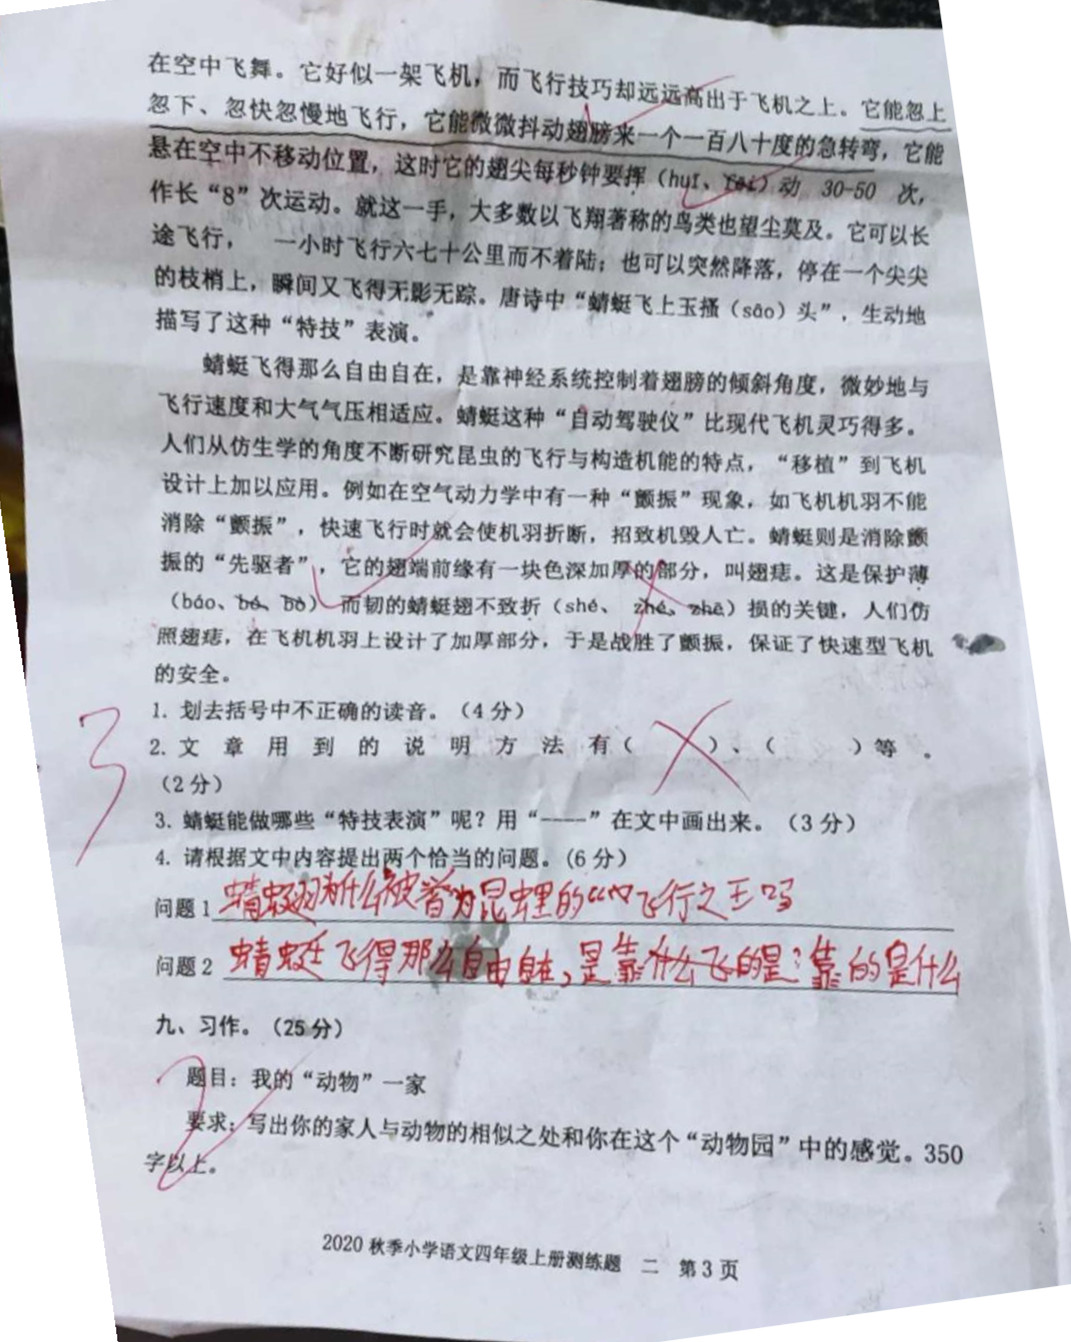 在空中飞舞。它好似一架飞机，而飞行技巧却远远高出于飞机之上。它能忽上
忽下、忽快忽慢地飞行，它能微微抖动翅膀来一个一百八十度的急转弯，它能
悬在空中不移动位置，这时它的翅尖每秒钟要挥（huī、fēi）动 30-50 次，
作长“8”次运动。就这一手，大多数以飞翔著称的鸟类也望尘莫及。它可以长
途飞行， 一小时飞行六七十公里而不着陆；也可以突然降落，停在一个尖尖
的枝梢上，瞬间又飞得无影无踪。唐诗中“蜻蜓飞上玉搔（sāo）头”，生动地
描写了这种“特技”表演。
蜻蜓飞得那么自由自在，是靠神经系统控制着翅膀的倾斜角度，微妙地与
飞行速度和大气气压相适应。蜻蜓这种“自动驾驶仪”比现代飞机灵巧得多。
人们从仿生学的角度不断研究昆虫的飞行与构造机能的特点，“移植”到飞机
设计上加以应用。例如在空气动力学中有一种“颤振”现象，如飞机机羽不能
消除“颤振”，快速飞行时就会使机羽折断，招致机毁人亡。蜻蜓则是消除颤
振的“先驱者”，它的翅端前缘有一块色深加厚的部分，叫翅痣。这是保护薄
（báo、bó、bò）而韧的蜻蜓翅不致折（shé、 zhé、zhē）损的关键，人们仿
照翅痣，在飞机机羽上设计了加厚部分，于是战胜了颤振，保证了快速型飞机
的安全。
1. 划去括号中不正确的读音。（4分）
2. 文 章 用 到 的 说 明 方 法 有（ ）、（ ）等 。
（2分）
3. 蜻蜓能做哪些“特技表演”呢？用“——”在文中画出来。（3分）
4. 请根据文中内容提出两个恰当的问题。（6分）
问题1 蜻蜓为什么被誉为昆虫里的“飞行之王吗
问题2 蜻蜓飞得那么自由自在，是靠什么飞的是？靠的是什么
九、习作。（25分）
题目：我的“动物”一家
要求：写出你的家人与动物的相似之处和你在这个“动物园”中的感觉。350
字以上。
3
2020 秋季小学语文四年级上册测练题 二 第3页